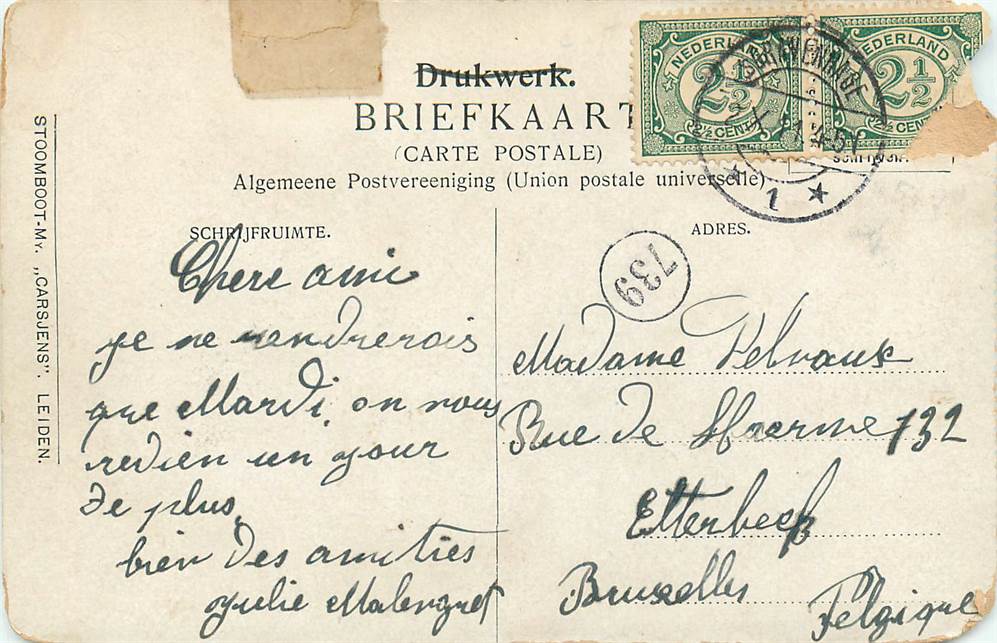 Drukwerk.
BRIEFKAART
(CARTE POSTALE)
Algemeene Postvereeniging (Union postale universelle)
NEDERLAND
2½
2½ CENT
NEDERLAND
2½
2½ CENT
'S GRAVENHAGE
1
STOOMBOOT-MY. „CARSJENS". LEIDEN.
SCHRIJFRUIMTE.
Chere amie
je ne rendrerois
que Mardi, on nous
redien un jour
de plus,
bien des amities
julie
ADRES.
739
Madame Pelvaux
Rue de Haerne 132
Etterbeek
Bruxelles
Belgique